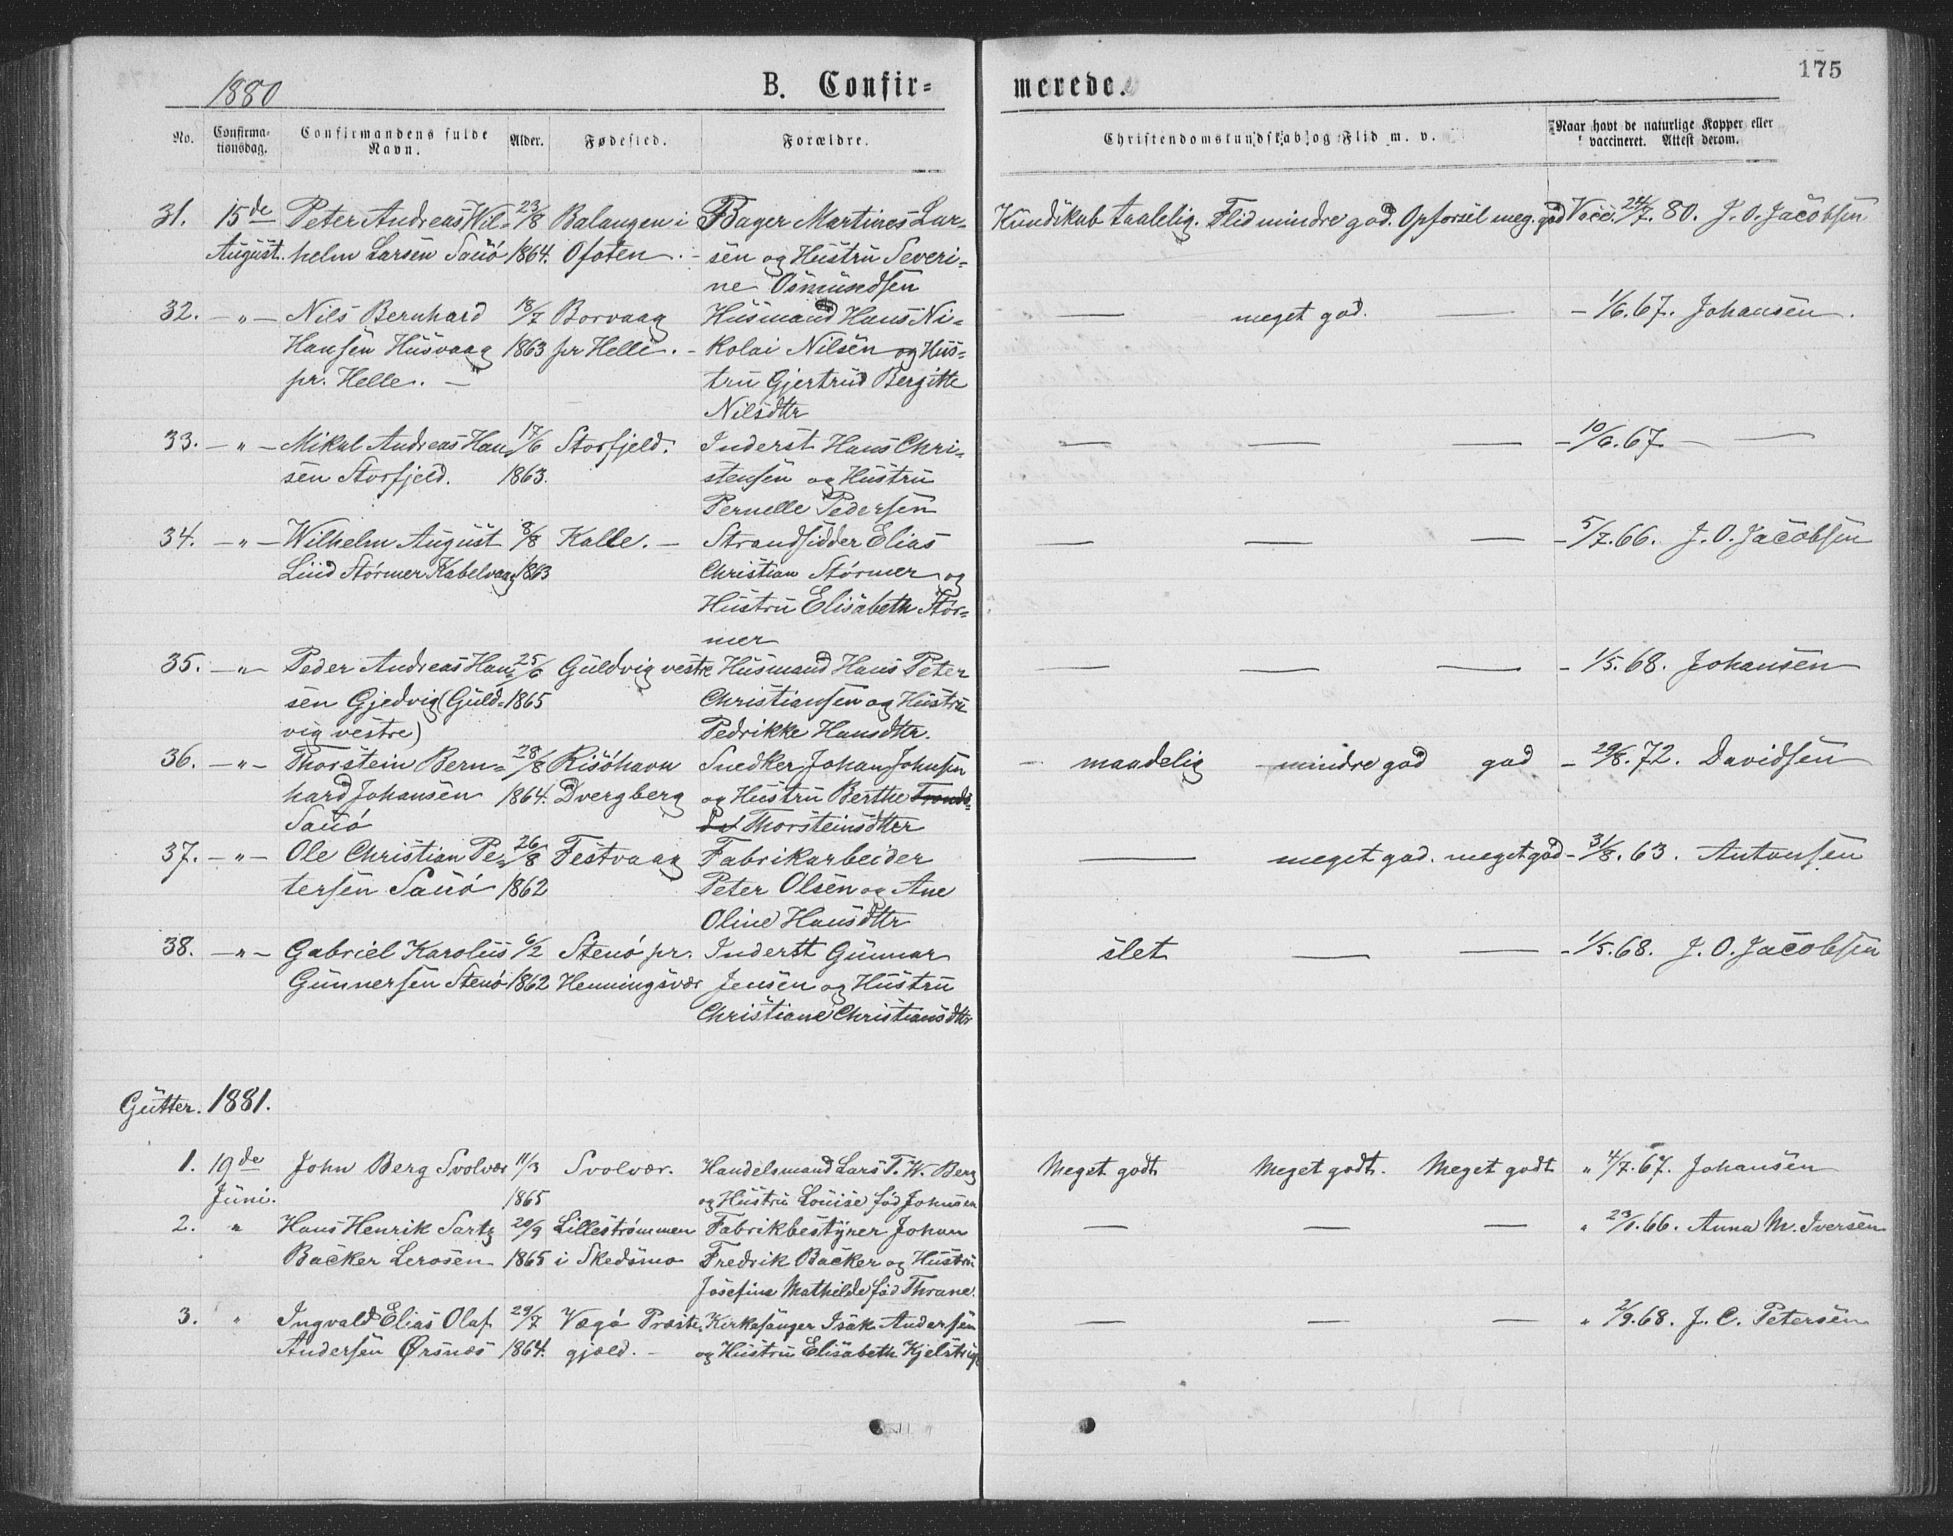 1880
B. Confir=
merede.
175
No.
Confirma-
tionsdag.
Confirmandens fulde
Navn.
Alder.
Fødested.
Forældre.
Christendomskundskab og Flid m. v.
Naar havt de naturlige Kopper eller
vaccineret. Attest derom.
31. 15de Peter Andreas Wil= 23/8 Balangen i Bager Martines Lar= Kundskab taalelig. Flid mindre god. Opførsel meg. god Vacc. 24/7. 80. J. O. Jacobsen
August. helm Larsen Sauø 1864. Ofoten. - sen og Hustru Severi=
ne Osmundsen
32. - " - Nils Bernhard 18/7 Borvaag Husmand Hans Ni= — meget god. — - 1/6. 67. Johansen.
Hansen Husvaag 1863 pr Helle. - kolai Nilsen og Hus=
pr. Helle. - tru Gjertrud Bergitte
Nilsdttr
33. - " - Mikal Andreas Han= 17/6 Storfjeld. Inderst Hans Chri= — — — - 10/6. 67. — —
sen Storfjeld. 1863. stensen og Hustru
Pernelle Pedersen
34. - " - Wilhelm August 8/8 Kalle. - Strandsidder Elias — — — - 5/7. 66. J. O. Jacobsen
Lind Størmer Kabelvaag 1863 Christian Størmer og
Hustru Elisabeth Stør=
mer
35. - " - Peder Andreas Han= 25/6 Guldvig vestre Husmand Hans Peter — — — - 1/5. 68. Johansen
sen Gjedvig (Guld= 1865 Christiansen og Hustru
vig vestre) Pedrikke Hansdttr.
36. - " - Thorstein Bern= 28/8 Risøhavn Snedker Johan Johnsen - maadelig - mindre god god - 29/8. 72. Davidsen
hard Johansen 1864. Dvergberg og Hustru Berthe Tronds=
Sauø Thorsteinsdtter
37. - " - Ole Christian Pe= 26/8 Festvaag Fabrikarbeider — meget god. meget god - 31/8. 63. Antonsen
tersen Sauø 1862 Peter Olsen og Ane
Oline Hansdttr
38. - " - Gabriel Karolus 6/2 Stenø pr. Inderst Gunnar slet — — - 1/5. 68. J. O. Jacobsen
Gunnersen Stenø 1862 Henningsvær Jensen og Hustru
Christiane Christiansdttr
Gutter. 1881.
1. 19de John Berg Svolvær 11/3 Svolvær. Handelsmand Lars T. W. Berg Meget godt Meget godt. Meget godt " 4/7. 67. Johansen
Juni. 1865 og Hustru Louise fød Johnsen
2. " Hans Henrik Sartz 20/9 Lillestrømmen Fabrikbestyrer Johan — — — " 66. Anna M. Iversen
Backer Lerosen 1865 i Skedsmo Fredrik Backer og Hustru
Josefine Mathilde fød Thrane.
3. " Ingvald Elias Olaf 29/7 Vægø Præste. Kirkesanger Isak Andersen — — — " 2/9. 68. J. C. Petersen
Andersen Ørsnæs 1864. gjæld. - og Hustru Elisabeth Kjelstrup